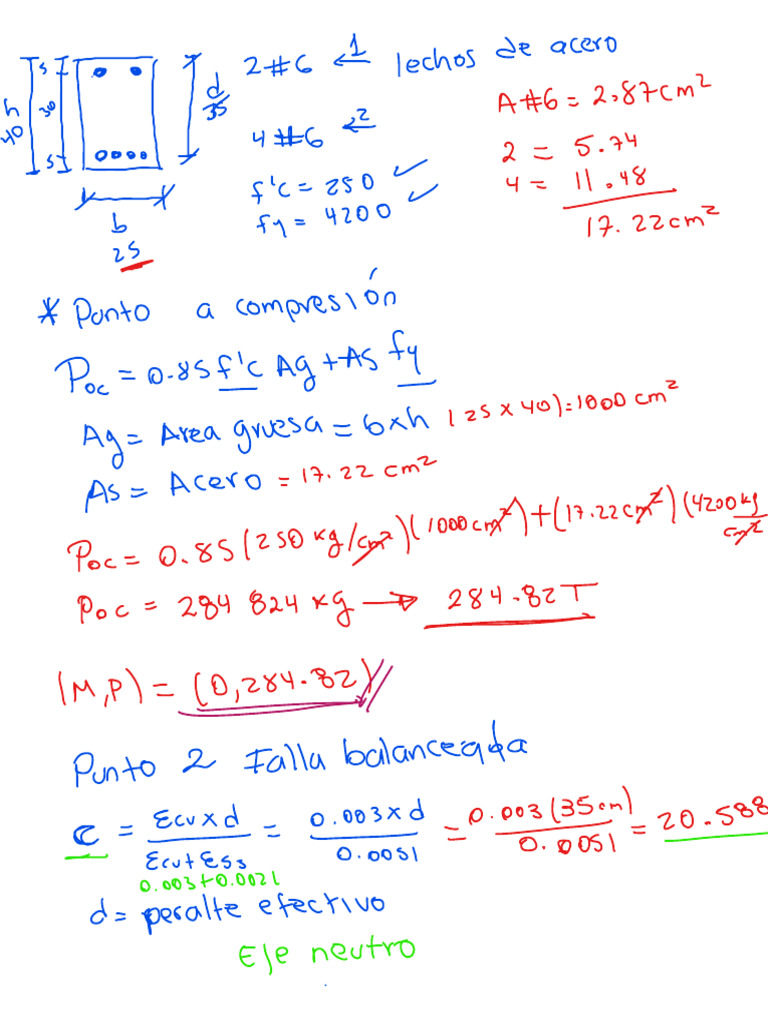 2#6 ← 1 lechos de acero
A#6 = 2.87cm²
h 40
5
30
5
d 35
4#6 ← 2
2 = 5.74
4 = 11.48
17.22cm²
f'c = 250 ✓
fy = 4200 ✓
b
25
* Punto a compresión
Poc = 0.85 f'c Ag + As fy
Ag = Area gruesa = bxh (25 x 40) = 1000 cm²
As = Acero = 17.22 cm²
Poc = 0.85 (250 kg/cm²)(1000cm²) + (17.22cm²)(4200kg/cm²
Poc = 284 824 kg → 284.82T
(M,P) = (0,284.82)
Punto 2 Falla balanceada
c = Ecu x d / Ecu + Es3 = 0.003 x d / 0.0051 = 0.003 (35cm) / 0.0051 = 20.588
0.003+0.0021
d = peralte efectivo
Eje neutro